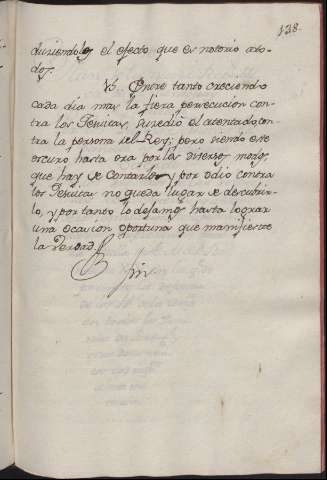 138.
duziendolos el efecto que es notorio a to-
dos.
V6. Entre tanto creciendo
cada dia mas la fiera persecucion con-
tra los Jesuitas, sucedio el atentado con-
tra la persona del Rey; pero siendo este
oscuro hasta ora por los diversos modos,
que hay de contarlo, y por odio contra
los Jesuitas no queda lugar de descubrir-
lo, y por tanto lo dejamos hasta lograr
una ocasion oportuna que manifieste
la verdad.
Fin